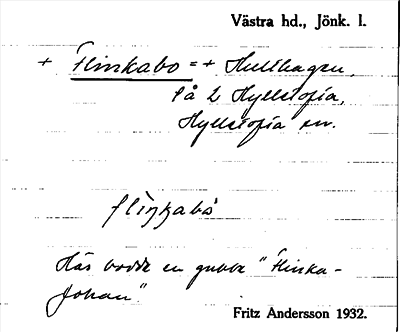 Västra hd., Jönk. l.
+ Flinkabo = + Hullhagen,
på 2 Hyllstofia,
Hyllstofia sn.
flìŋkabo
Här bodde en gubbe "Flinka-
Johan"
Fritz Andersson 1932.